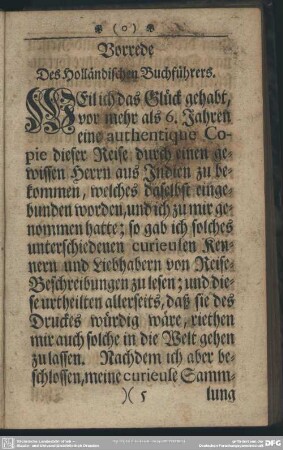 ❀ ( o ) ❀
Vorrede
Des Holländischen Buchführers.
WEil ich das Glück gehabt,
vor mehr als 6. Jahren
eine authentique Co-
pie dieser Reise durch einen ge-
wissen Herrn aus Indien zu be-
kommen, welches daselbst einge-
bunden worden, und ich zu mir ge-
nommen hatte; so gab ich solches
unterschiedenen curieusen Ken-
nern und Liebhabern von Reise-
Beschreibungen zu lesen; und die-
se urtheilten allerseits, daß sie des
Druckes würdig wäre, riethen
mir auch solche in die Welt gehen
zu lassen. Nachdem ich aber be-
schlossen, meine curieuse Samm-
)( 5 lung
DFG